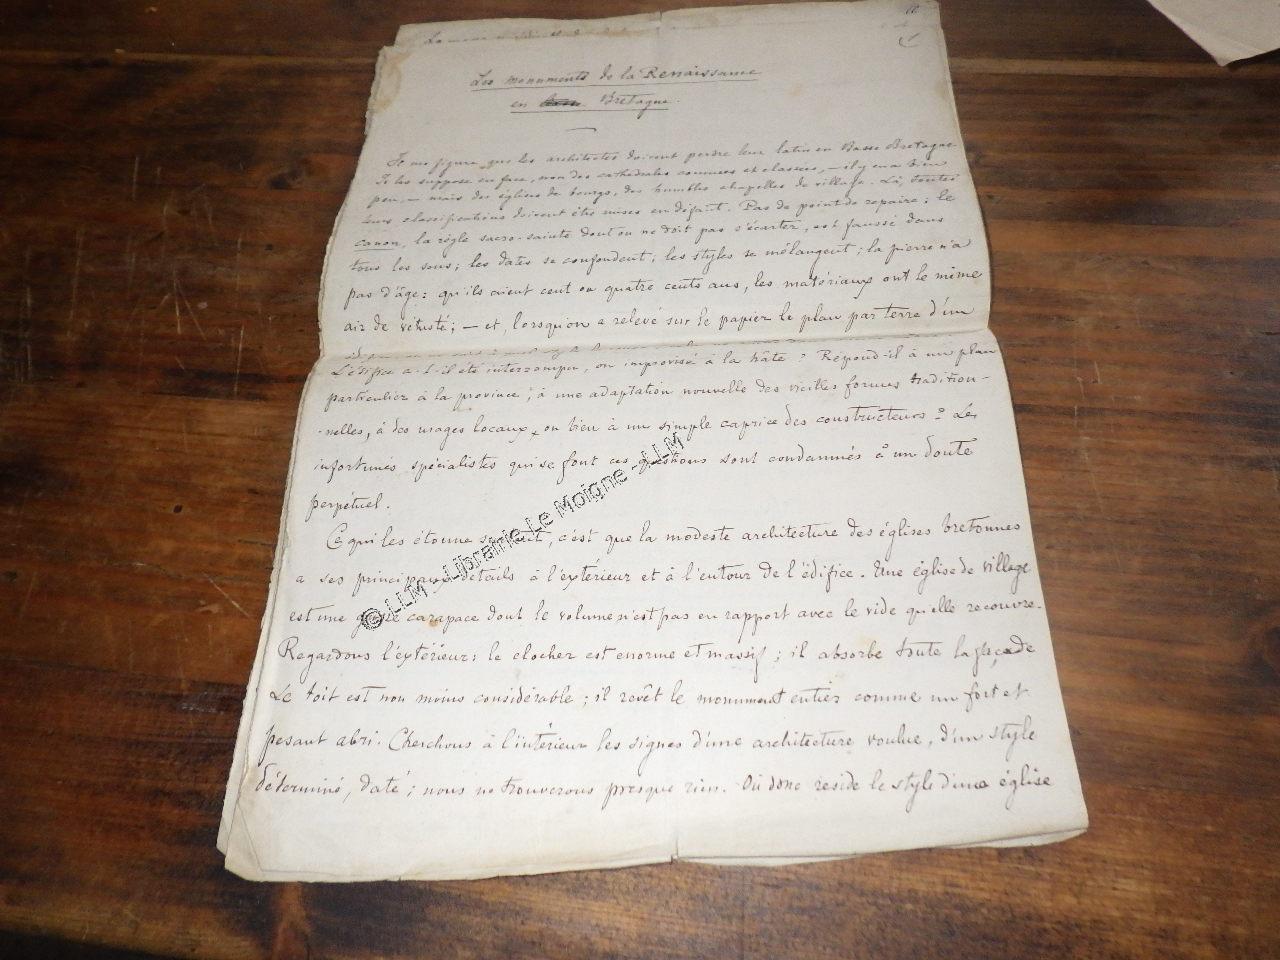 Les monuments de la Renaissance
en Bretagne.
Je me figure que les architectes doivent perdre leur latin en Basse Bretagne
Je les suppose en face, non des cathédrales connues et classées, — il y en a bien
peu, — mais des églises de bourgs, des humbles chapelles de village. Là, toutes
leurs classifications doivent être mises en défaut. Pas de point de repaire ; le
canon, la règle sacro-sainte dont on ne doit pas s'écarter, est faussé dans
tous les sens ; les dates se confondent ; les styles se mélangent ; la pierre n'a
pas d'âge : qu'ils aient cent ou quatre cents ans, les matériaux ont le même
air de vétusté ; — et, lorsqu'on a relevé sur le papier le plan par terre d'un
L'édifice a-t-il été interrompu, ou improvisé à la hâte ? Répond-il à un plan
particulier à la province ; à une adaptation nouvelle des vieilles formes tradition-
-nelles, à des usages locaux, ou bien à un simple caprice des constructeurs ? Les
infortunés spécialistes qui se font ces questions sont condamnés à un doute
perpétuel.
Ce qui les étonne surtout, c'est que la modeste architecture des églises bretonnes
a ses principaux détails à l'extérieur et à l'entour de l'édifice. Une église de village
est une grosse carapace dont le volume n'est pas en rapport avec le vide qu'elle recouvre.
Regardons l'extérieur : le clocher est énorme et massif ; il absorbe toute la façade
Le toit est non moins considérable ; il revêt le monument entier comme un fort et
pesant abri. Cherchons à l'intérieur les signes d'une architecture voulue, d'un style
déterminé, daté ; nous ne trouverons presque rien. Où donc réside le style d'une église
© LLM - Librairie Le Moigne - LLM